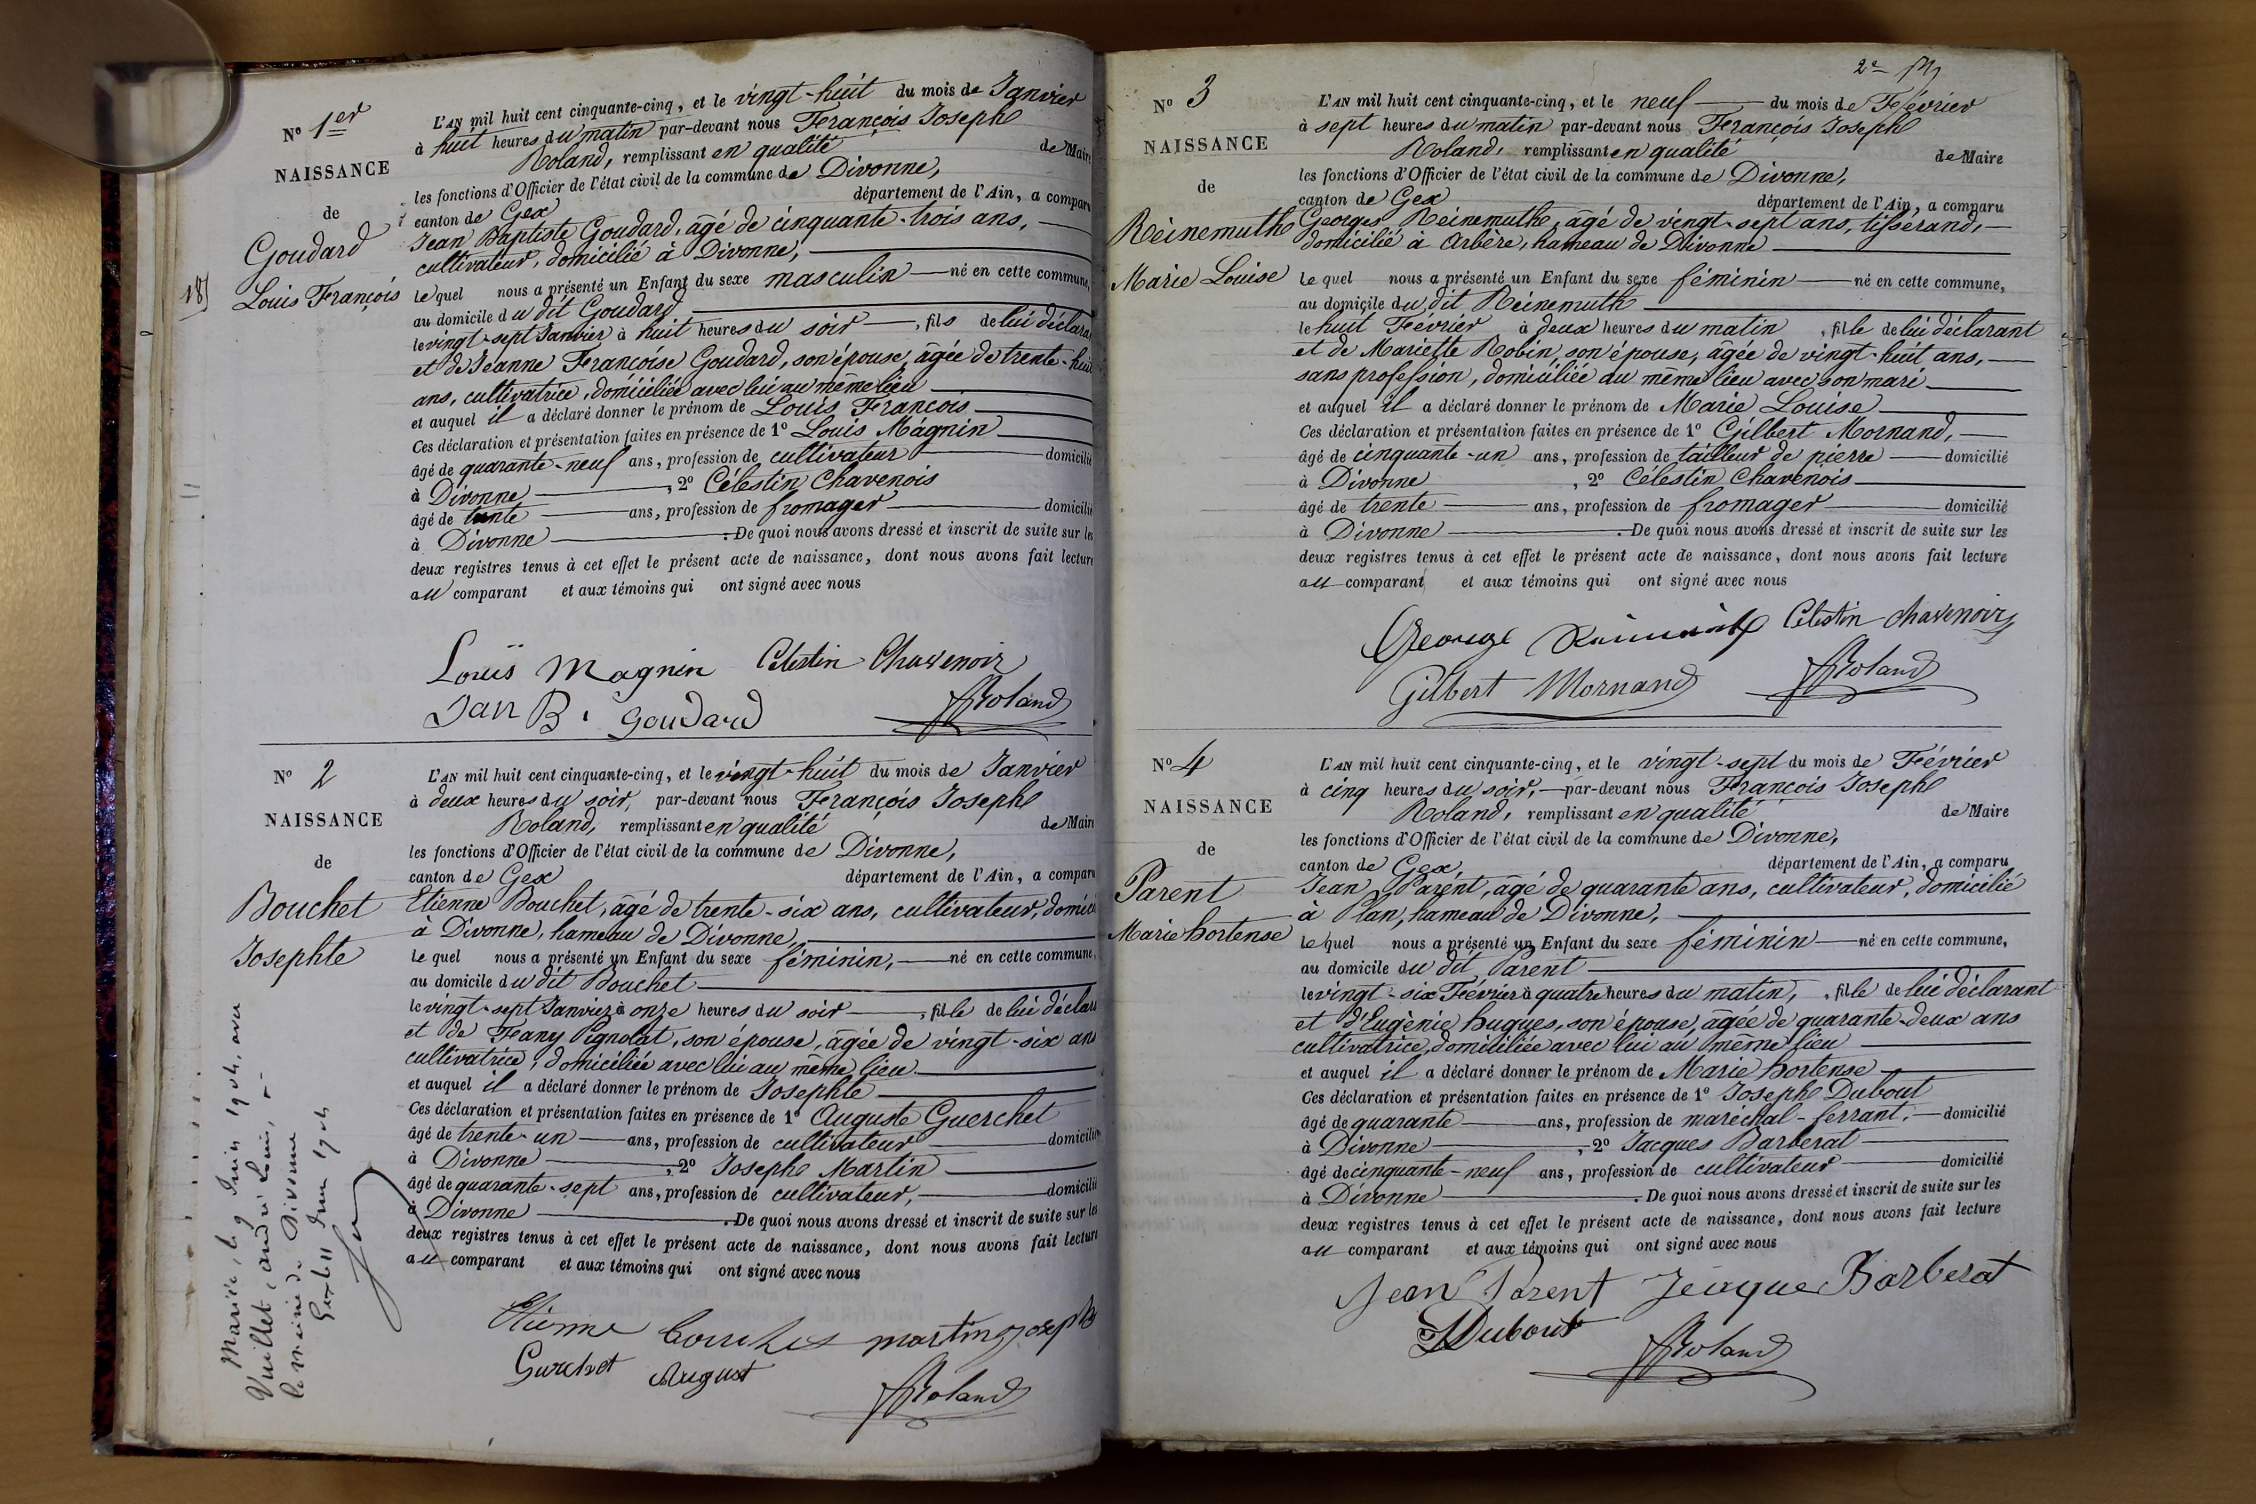 N° 1er
NAISSANCE
de
Goudard
Louis François
L'AN mil huit cent cinquante-cinq, et le vingt-huit du mois de Janvier
à huit heures du matin par-devant nous François Joseph
Roland, remplissant en qualité de Maire
les fonctions d'Officier de l'état civil de la commune de Divonne,
canton de Gex département de l'Ain, a comparu
Jean Baptiste Goudard, âgé de cinquante-trois ans,
cultivateur, domicilié à Divonne,
Lequel nous a présenté un Enfant du sexe masculin né en cette commune,
au domicile du dit Goudard
le vingt-sept Janvier à huit heures du soir, fils de lui déclara
et de Jeanne Françoise Goudard, son épouse, âgée de trente-huit
ans, cultivatrice, domiciliée avec lui au même lieu
et auquel il a déclaré donner le prénom de Louis François
Ces déclaration et présentation faites en présence de 1° Louis Magnin
âgé de quarante-neuf ans, profession de cultivateur domicilié
à Divonne, 2° Célestin Chavenois
âgé de trente ans, profession de fromager domicilié
à Divonne. De quoi nous avons dressé et inscrit de suite sur les
deux registres tenus à cet effet le présent acte de naissance, dont nous avons fait lecture
au comparant et aux témoins qui ont signé avec nous
Louis Magnin Celestin Chavenoir
Jan B. Goudard Roland
N° 2
NAISSANCE
de
Bouchet
Josephte
L'AN mil huit cent cinquante-cinq, et le vingt-huit du mois de Janvier
à deux heures du soir, par-devant nous François Joseph
Roland, remplissant en qualité de Maire
les fonctions d'Officier de l'état civil de la commune de Divonne,
canton de Gex département de l'Ain, a comparu
Etienne Bouchet, âgé de trente-six ans, cultivateur, domici
à Divonne, hameau de Divonne,
Le quel nous a présenté un Enfant du sexe féminin, né en cette commune,
au domicile du dit Bouchet
le vingt-sept Janvier à onze heures du soir, fille de lui déclara
et de Fany Pignolat, son épouse, âgée de vingt-six ans
cultivatrice, domiciliée avec lui au même lieu
et auquel il a déclaré donner le prénom de Josephte
Ces déclaration et présentation faites en présence de 1° Auguste Guerchet
âgé de trente-un ans, profession de cultivateur domicilié
à Divonne, 2° Joseph Martin
âgé de quarante-sept ans, profession de cultivateur, domicilié
à Divonne. De quoi nous avons dressé et inscrit de suite sur les
deux registres tenus à cet effet le présent acte de naissance, dont nous avons fait lecture
au comparant et aux témoins qui ont signé avec nous
Etienne martin joseph
Gurchet August Roland
Mariée, le 9 Juin 1904, avec
Vuillet, andré Louis, à
la mairie de Divonne
Gex le 11 Juin 1904
N° 3
NAISSANCE
de
Reinemuth
Marie Louise
L'AN mil huit cent cinquante-cinq, et le neuf du mois de Février
à sept heures du matin par-devant nous François Joseph
Roland, remplissant en qualité de Maire
les fonctions d'Officier de l'état civil de la commune de Divonne,
canton de Gex département de l'Ain, a comparu
Georges Reinemuth, âgé de vingt-sept ans, tisserand,
domicilié à Arbère, hameau de Divonne
Le quel nous a présenté un Enfant du sexe féminin né en cette commune,
au domicile du dit Reinemuth
le huit Février à deux heures du matin, fille de lui déclarant
et de Mariette Robin, son épouse, âgée de vingt-huit ans,
sans profession, domiciliée au même lieu avec son mari
et auquel il a déclaré donner le prénom de Marie Louise
Ces déclaration et présentation faites en présence de 1° Gilbert Mornand,
âgé de cinquante-un ans, profession de tailleur de pierre domicilié
à Divonne, 2° Célestin Chavenois
âgé de trente ans, profession de fromager domicilié
à Divonne. De quoi nous avons dressé et inscrit de suite sur les
deux registres tenus à cet effet le présent acte de naissance, dont nous avons fait lecture
au comparant et aux témoins qui ont signé avec nous
George Celestin Chavenoir
Gilbert Mornand Roland
N° 4
NAISSANCE
de
Parent
Marie hortense
L'AN mil huit cent cinquante-cinq, et le vingt-sept du mois de Février
à cinq heures du soir, par-devant nous François Joseph
Roland, remplissant en qualité de Maire
les fonctions d'Officier de l'état civil de la commune de Divonne,
canton de Gex, département de l'Ain, a comparu
Jean Parent, âgé de quarante ans, cultivateur, domicilié
à Plan, hameau de Divonne,
Le quel nous a présenté un Enfant du sexe féminin né en cette commune,
au domicile du dit Parent
le vingt-six Février à quatre heures du matin, fille de lui déclarant
et d'Eugénie hugues, son épouse, âgée de quarante-deux ans
cultivatrice, domiciliée avec lui au même lieu
et auquel il a déclaré donner le prénom de Marie hortense
Ces déclaration et présentation faites en présence de 1° Joseph Dubout
âgé de quarante ans, profession de maréchal-ferrant, domicilié
à Divonne, 2° Jacques Barberat
âgé de cinquante-neuf ans, profession de cultivateur domicilié
à Divonne. De quoi nous avons dressé et inscrit de suite sur les
deux registres tenus à cet effet le présent acte de naissance, dont nous avons fait lecture
au comparant et aux témoins qui ont signé avec nous
Jean Parent Jacque Barberat
Dubout Roland